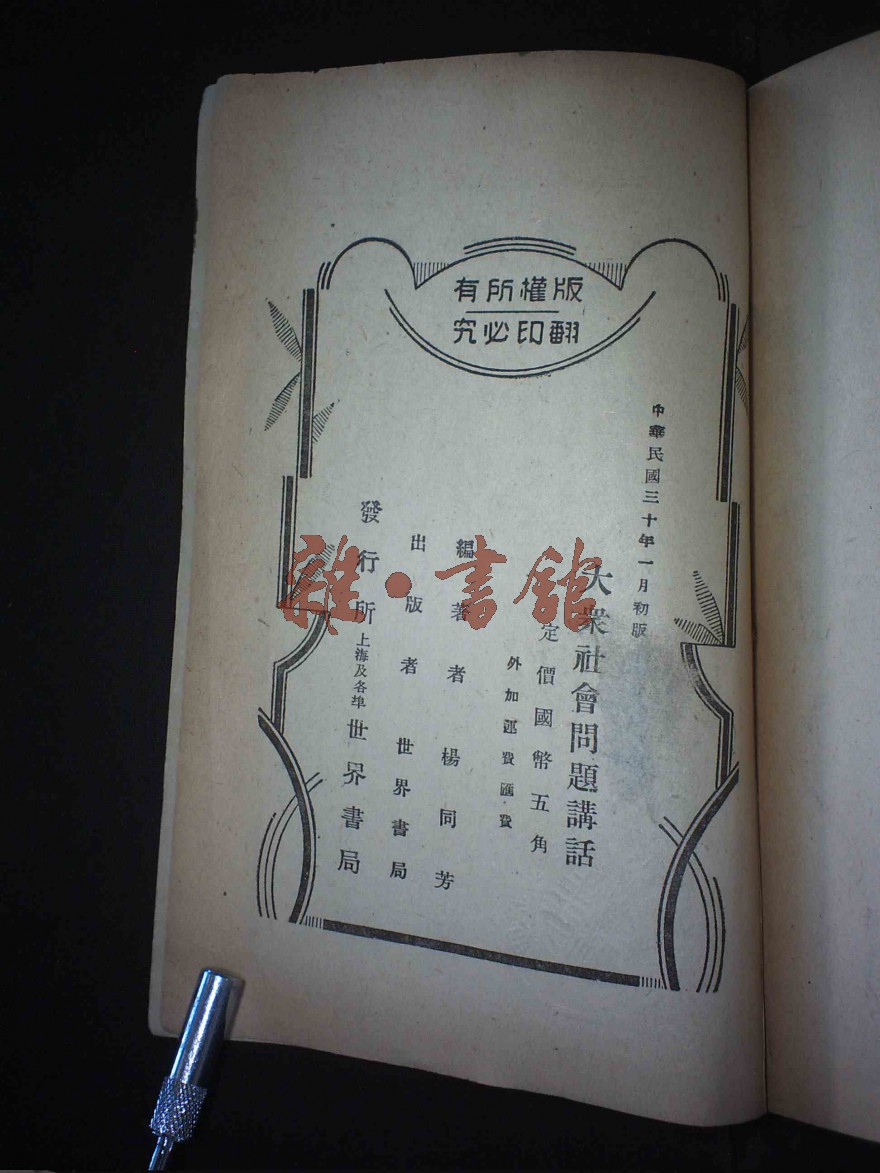 版權所有
翻印必究
中華民國三十年一月初版
大衆社會問題講話
定價國幣五角
外加運費匯費
編著者 楊同芳
出版者 世界書局
發行所 上海及各埠 世界書局
雜·書館